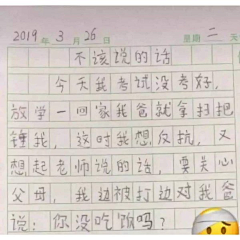 2019年 3月 26日 星期 二 天
不该说的话
今天我考试没考好，
放学一回家我爸就拿扫把
锤我，这时我想反抗，又
想起老师说的话，要关心
父母，我边被打边对我爸
说：你没吃饭吗？